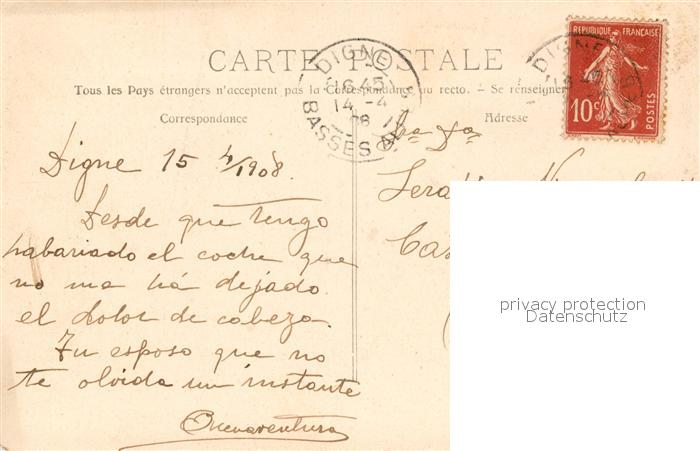 CARTE POSTALE
Tous les Pays étrangers n'acceptent pas la Correspondance au recto. — Se renseigner
Correspondance
Adresse
REPUBLIQUE FRANÇAISE
10c
POSTES
DIGNE
6 45
14 -4
08
BASSES
DIGNE
Digne 15 4/1908.
Desde que tengo
habariado el coche que
no ma há dejado
el dolor de cabeza.
Tu esposo que no
te olvida un instante
Buenaventura
Sra Da
privacy protection
Datenschutz